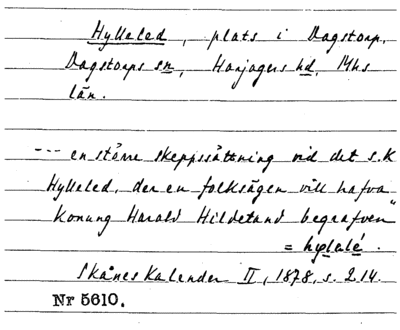 Hylleled, plats i Dagstorp,
Dagstorps sn, Harjagers hd, Mhs
län.
--- en större skeppssättning vid det s.k
Hylleled, der en folksägen vill hafva
Konung Harald Hildetand begrafven"
= hylalé.
Skånes Kalender II, 1878, s. 214.
Nr 5610.